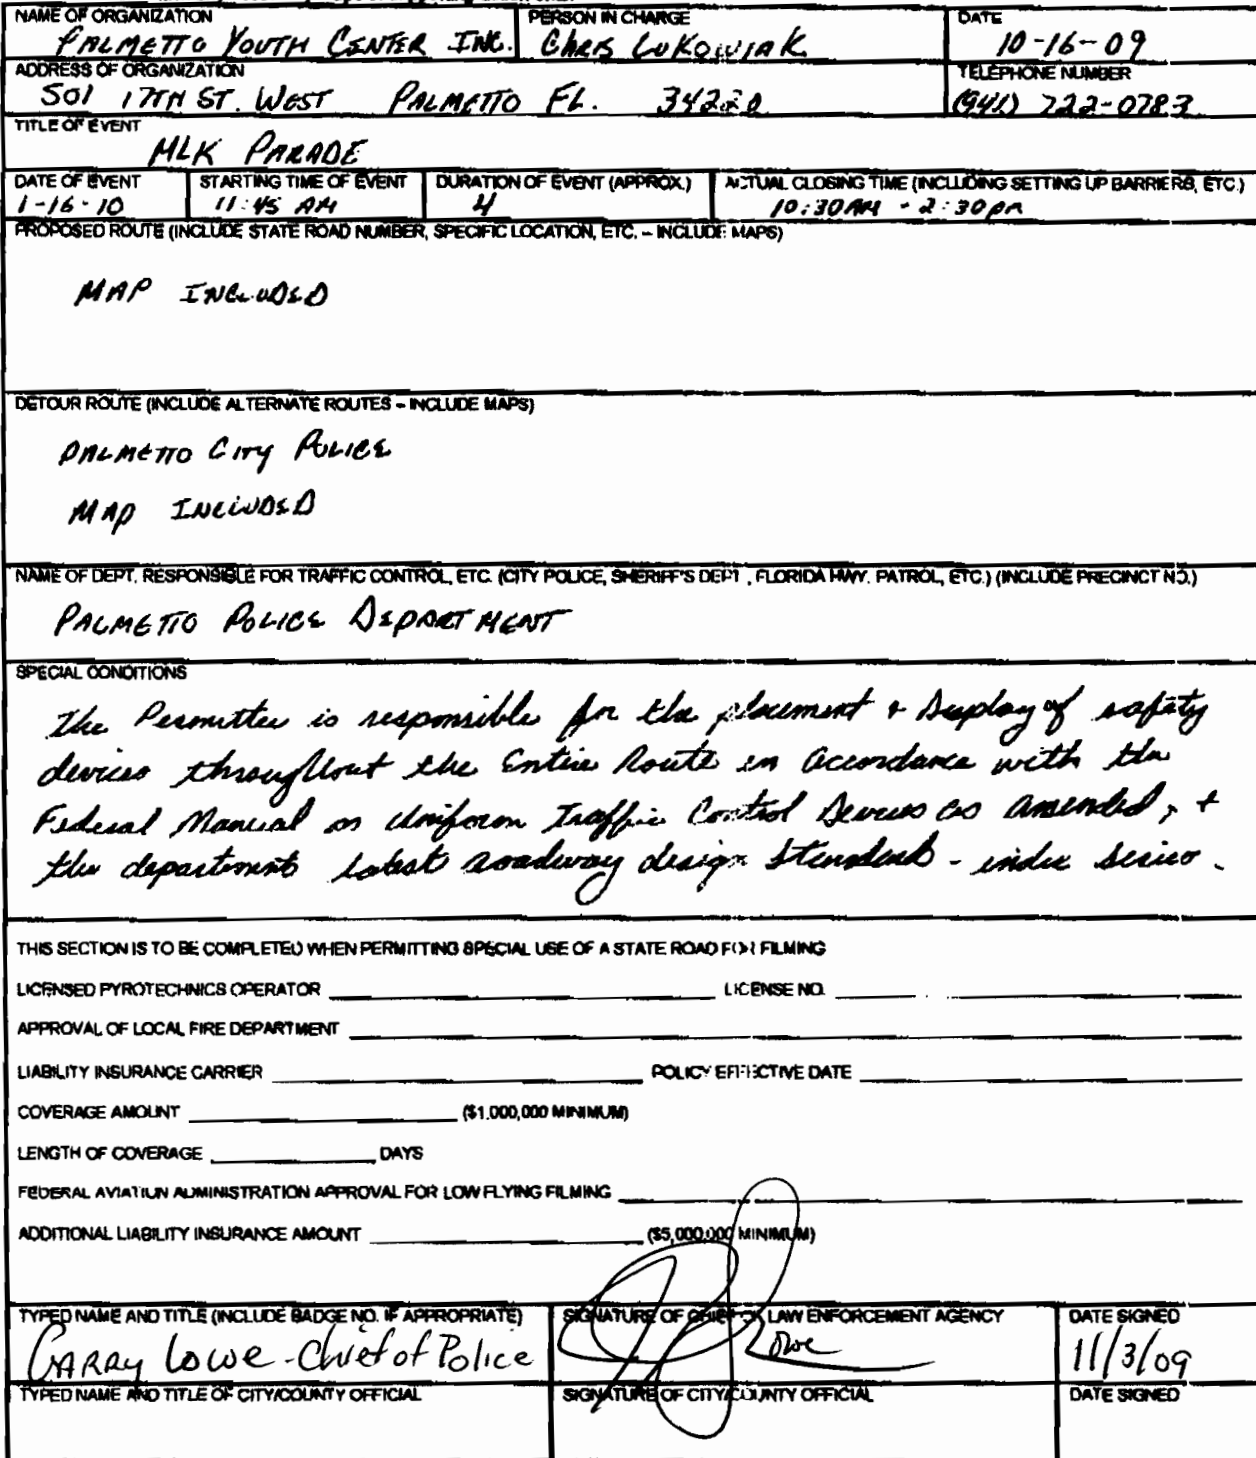 NAME OF ORGANIZATION PERSON IN CHARGE DATE
PALMETTO YOUTH CENTER INC. CHRIS LUKOWIAK 10-16-09
ADDRESS OF ORGANIZATION TELEPHONE NUMBER
501 17TH ST. WEST PALMETTO FL. 34220 (941) 722-0783
TITLE OF EVENT
MLK PARADE
DATE OF EVENT STARTING TIME OF EVENT DURATION OF EVENT (APPROX.) ACTUAL CLOSING TIME (INCLUDING SETTING UP BARRIERS, ETC.)
1-16-10 11:45 AM 4 10:30AM - 2:30pm
PROPOSED ROUTE (INCLUDE STATE ROAD NUMBER, SPECIFIC LOCATION, ETC. – INCLUDE MAPS)
MAP INCLUDED
DETOUR ROUTE (INCLUDE ALTERNATE ROUTES – INCLUDE MAPS)
PALMETTO CITY POLICE
MAP INCLUDED
NAME OF DEPT. RESPONSIBLE FOR TRAFFIC CONTROL, ETC. (CITY POLICE, SHERIFF'S DEPT., FLORIDA HWY. PATROL, ETC.) (INCLUDE PRECINCT NO.)
PALMETTO POLICE DEPARTMENT
SPECIAL CONDITIONS
The Permittee is responsible for the placement + Display of safety
devices throughout the Entire Route in accordance with the
Federal Manual on Uniform Traffic Control Devices as amended, +
the departments latest roadway design standards - index series.
THIS SECTION IS TO BE COMPLETED WHEN PERMITTING SPECIAL USE OF A STATE ROAD FOR FILMING
LICENSED PYROTECHNICS OPERATOR LICENSE NO.
APPROVAL OF LOCAL FIRE DEPARTMENT
LIABILITY INSURANCE CARRIER POLICY EFFECTIVE DATE
COVERAGE AMOUNT ($1,000,000 MINIMUM)
LENGTH OF COVERAGE DAYS
FEDERAL AVIATION ADMINISTRATION APPROVAL FOR LOW FLYING FILMING
ADDITIONAL LIABILITY INSURANCE AMOUNT ($5,000,000 MINIMUM)
TYPED NAME AND TITLE (INCLUDE BADGE NO. IF APPROPRIATE) SIGNATURE OF CHIEF OF LAW ENFORCEMENT AGENCY DATE SIGNED
GARRY Lowe - Chief of Police Lowe 11/3/09
TYPED NAME AND TITLE OF CITY/COUNTY OFFICIAL SIGNATURE OF CITY/COUNTY OFFICIAL DATE SIGNED